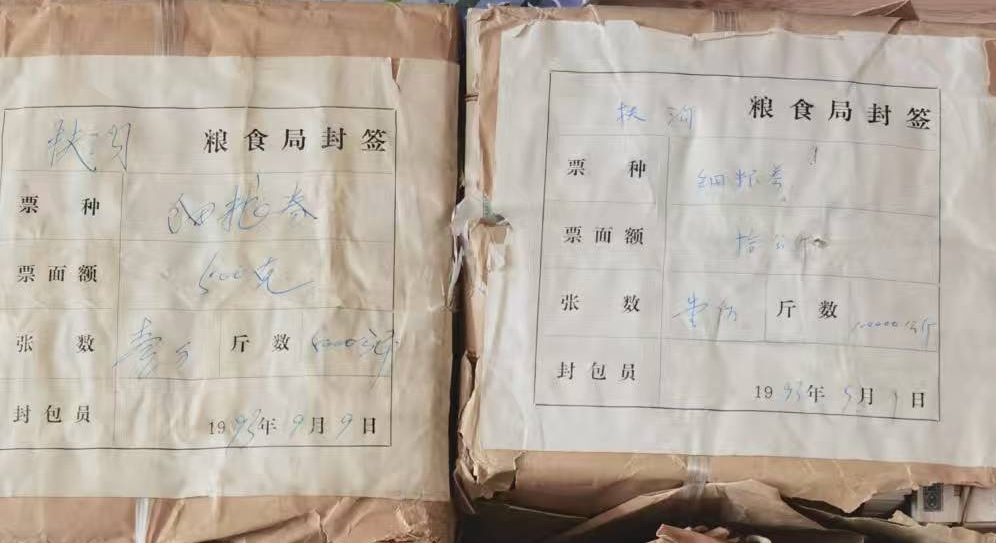 扶沟 粮食局封签
票种 细粮券
票面额 500克
张数 壹万 斤数 5000公斤
封包员 1993年9月9日
扶沟 粮食局封签
票种 细粮券
票面额 拾公斤
张数 壹万 斤数 100000公斤
封包员 1993年5月 日